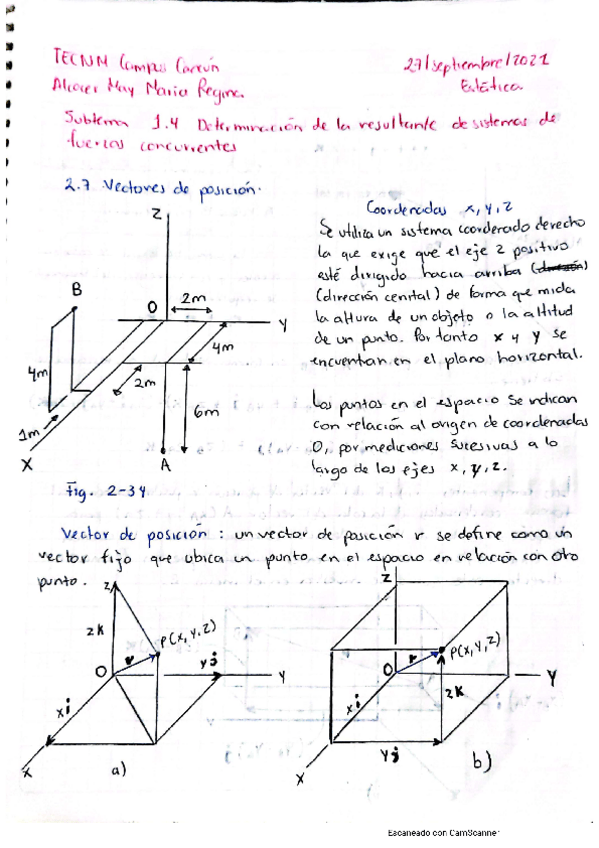 TECNM Campus Cancún
27/septiembre/2021
Alcocer May Maria Regina
Estática
Subtema 1.4 Determinación de la resultante de sistemas de
fuerzas concurrentes
2.7 Vectores de posición.
Coordenadas x, y, z
Se utiliza un sistema coordenado derecho
la que exige que el eje z positivo
esté dirigido hacia arriba
(dirección cenital) de forma que mida
la altura de un objeto o la altitud
de un punto. Por tanto x y y se
encuentran en el plano horizontal.
Los puntos en el espacio se indican
con relación al origen de coordenadas
O, por mediciones sucesivas a lo
largo de los ejes x, y, z.
Z
B
O
2m
Y
4m
4m
2m
6m
1m
X
A
Fig. 2-34
Vector de posición: un vector de posición r se define como un
vector fijo que ubica un punto en el espacio en relación con otro
punto.
Z
zK
P(x,y,z)
O
r
yj
Y
xi
X
a)
Z
O
r
P(x,y,z)
xi
zK
Y
yj
X
b)
Escaneado con CamScanner